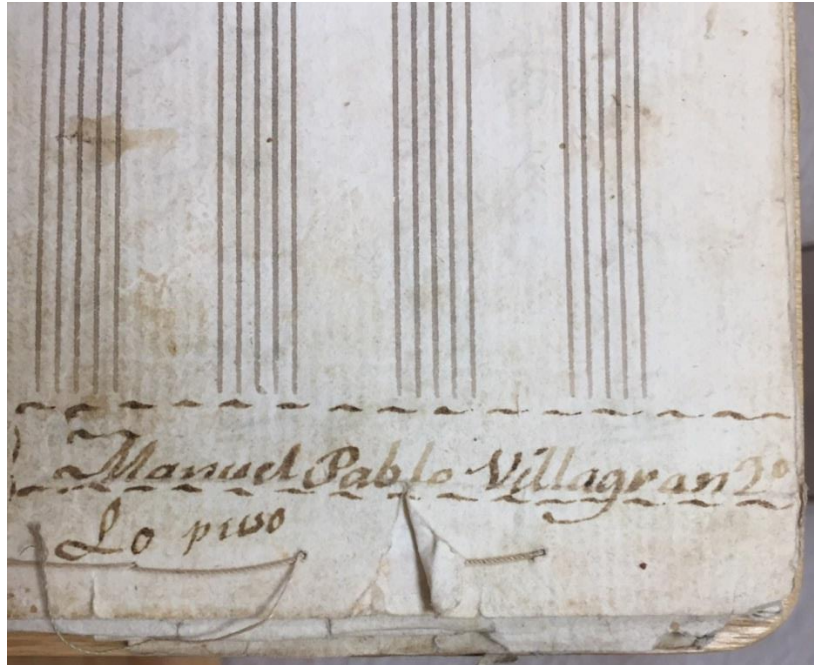 Manuel Pablo Villagran 2º
Lo puso